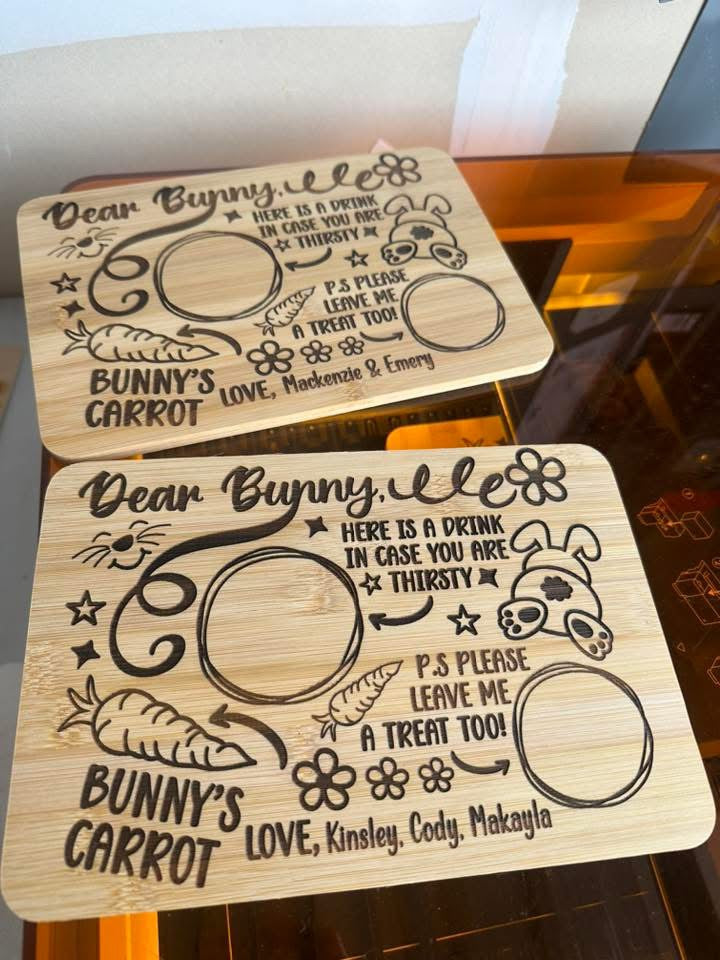 Dear Bunny,
HERE IS A DRINK
IN CASE YOU ARE
THIRSTY
P.S PLEASE
LEAVE ME
A TREAT TOO!
BUNNY'S
CARROT
LOVE, Mackenzie & Emery
Dear Bunny,
HERE IS A DRINK
IN CASE YOU ARE
THIRSTY
P.S PLEASE
LEAVE ME
A TREAT TOO!
BUNNY'S
CARROT
LOVE, Kinsley, Cody, Makayla